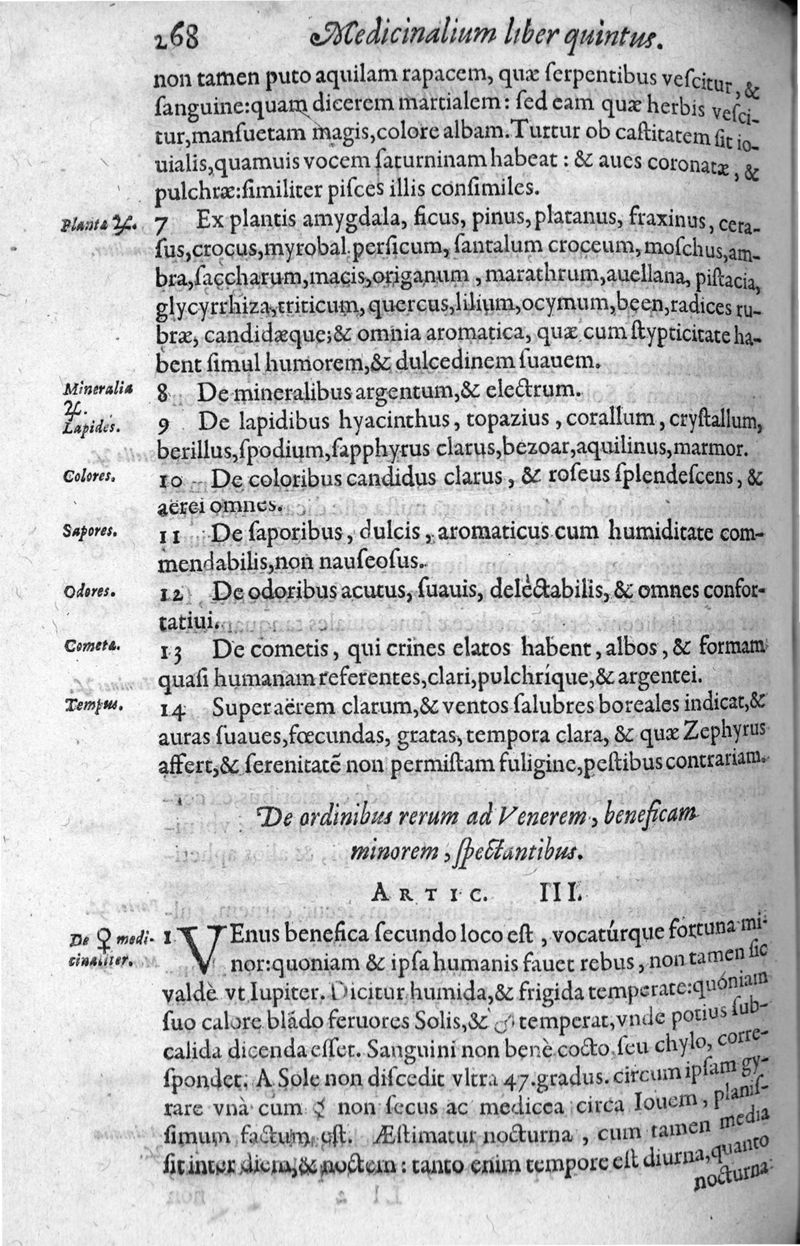 268 Medicinalium liber quintus.
non tamen puto aquilam rapacem, quæ ſerpentibus veſcitur, &
ſanguine: quam dicerem martialem: ſed eam quæ herbis veſci-
tur, manſuetam magis, colore albam. Turtur ob caſtitatem ſit io-
uialis, quamuis vocem ſaturninam habeat: & aues coronatæ, &
pulchræ: ſimiliter piſces illis conſimiles.
Planta ♃.
7 Ex plantis amygdala, ficus, pinus, platanus, fraxinus, cera-
ſus, crocus, myrobal. perſicum, ſantalum croceum, moſchus, am-
bra, ſaccharum, macis, origanum, marathrum, auellana, piſtacia,
glycyrrhiza, triticum, quercus, lilium, ocymum, been, radices ru-
bræ, candidæque; & omnia aromatica, quæ cum ſtypticitate ha-
bent ſimul humorem, & dulcedinem ſuauem.
Mineralia
♃.
8 De mineralibus argentum, & electrum.
Lapides.
9 De lapidibus hyacinthus, topazius, corallum, cryſtallum,
berillus, ſpodium, ſapphyrus clarus, bezoar, aquilinus, marmor.
Colores.
10 De coloribus candidus clarus, & roſeus ſplendeſcens, &
aërei omnes.
Sapores.
11 De ſaporibus, dulcis, aromaticus cum humiditate com-
mendabilis, non nauſeoſus.
Odores.
12 De odoribus acutus, ſuauis, delectabilis, & omnes confor-
tatiui.
Cometa.
13 De cometis, qui crines elatos habent, albos, & formam
quaſi humanam referentes, clari, pulchríque, & argentei.
Tempus.
14 Super aërem clarum, & ventos ſalubres boreales indicat, &
auras ſuaues, fœcundas, gratas, tempora clara, & quæ Zephyrus
affert, & ſerenitatē non permiſtam fuligine, peſtibus contrariam.
De ordinibus rerum ad Venerem, beneficam
minorem, ſpectantibus.
ARTIC. III.
De ♀ medi-
cinaliter.
1 VEnus benefica ſecundo loco eſt, vocatúrque fortuna mi-
nor: quoniam & ipſa humanis fauet rebus, non tamen ſic
valdè vt Iupiter. Dicitur humida, & frigida temperate: quóniam
ſuo calore blãdo feruores Solis, & ♂ temperat, vnde potius ſub-
calida dicenda eſſet. Sanguini non benè cocto, ſeu chylo, corre-
ſpondet. A Sole non diſcedit vltra 47. gradus. circum ipſam gy-
rare vnà cum ☿ non ſecus ac medicea circa Iouem, planiſ-
ſimum factum eſt. Æſtimatur nocturna, cum tamen media
ſit inter diem, & noctem: tanto enim tempore eſt diurna, quanto
nocturna.